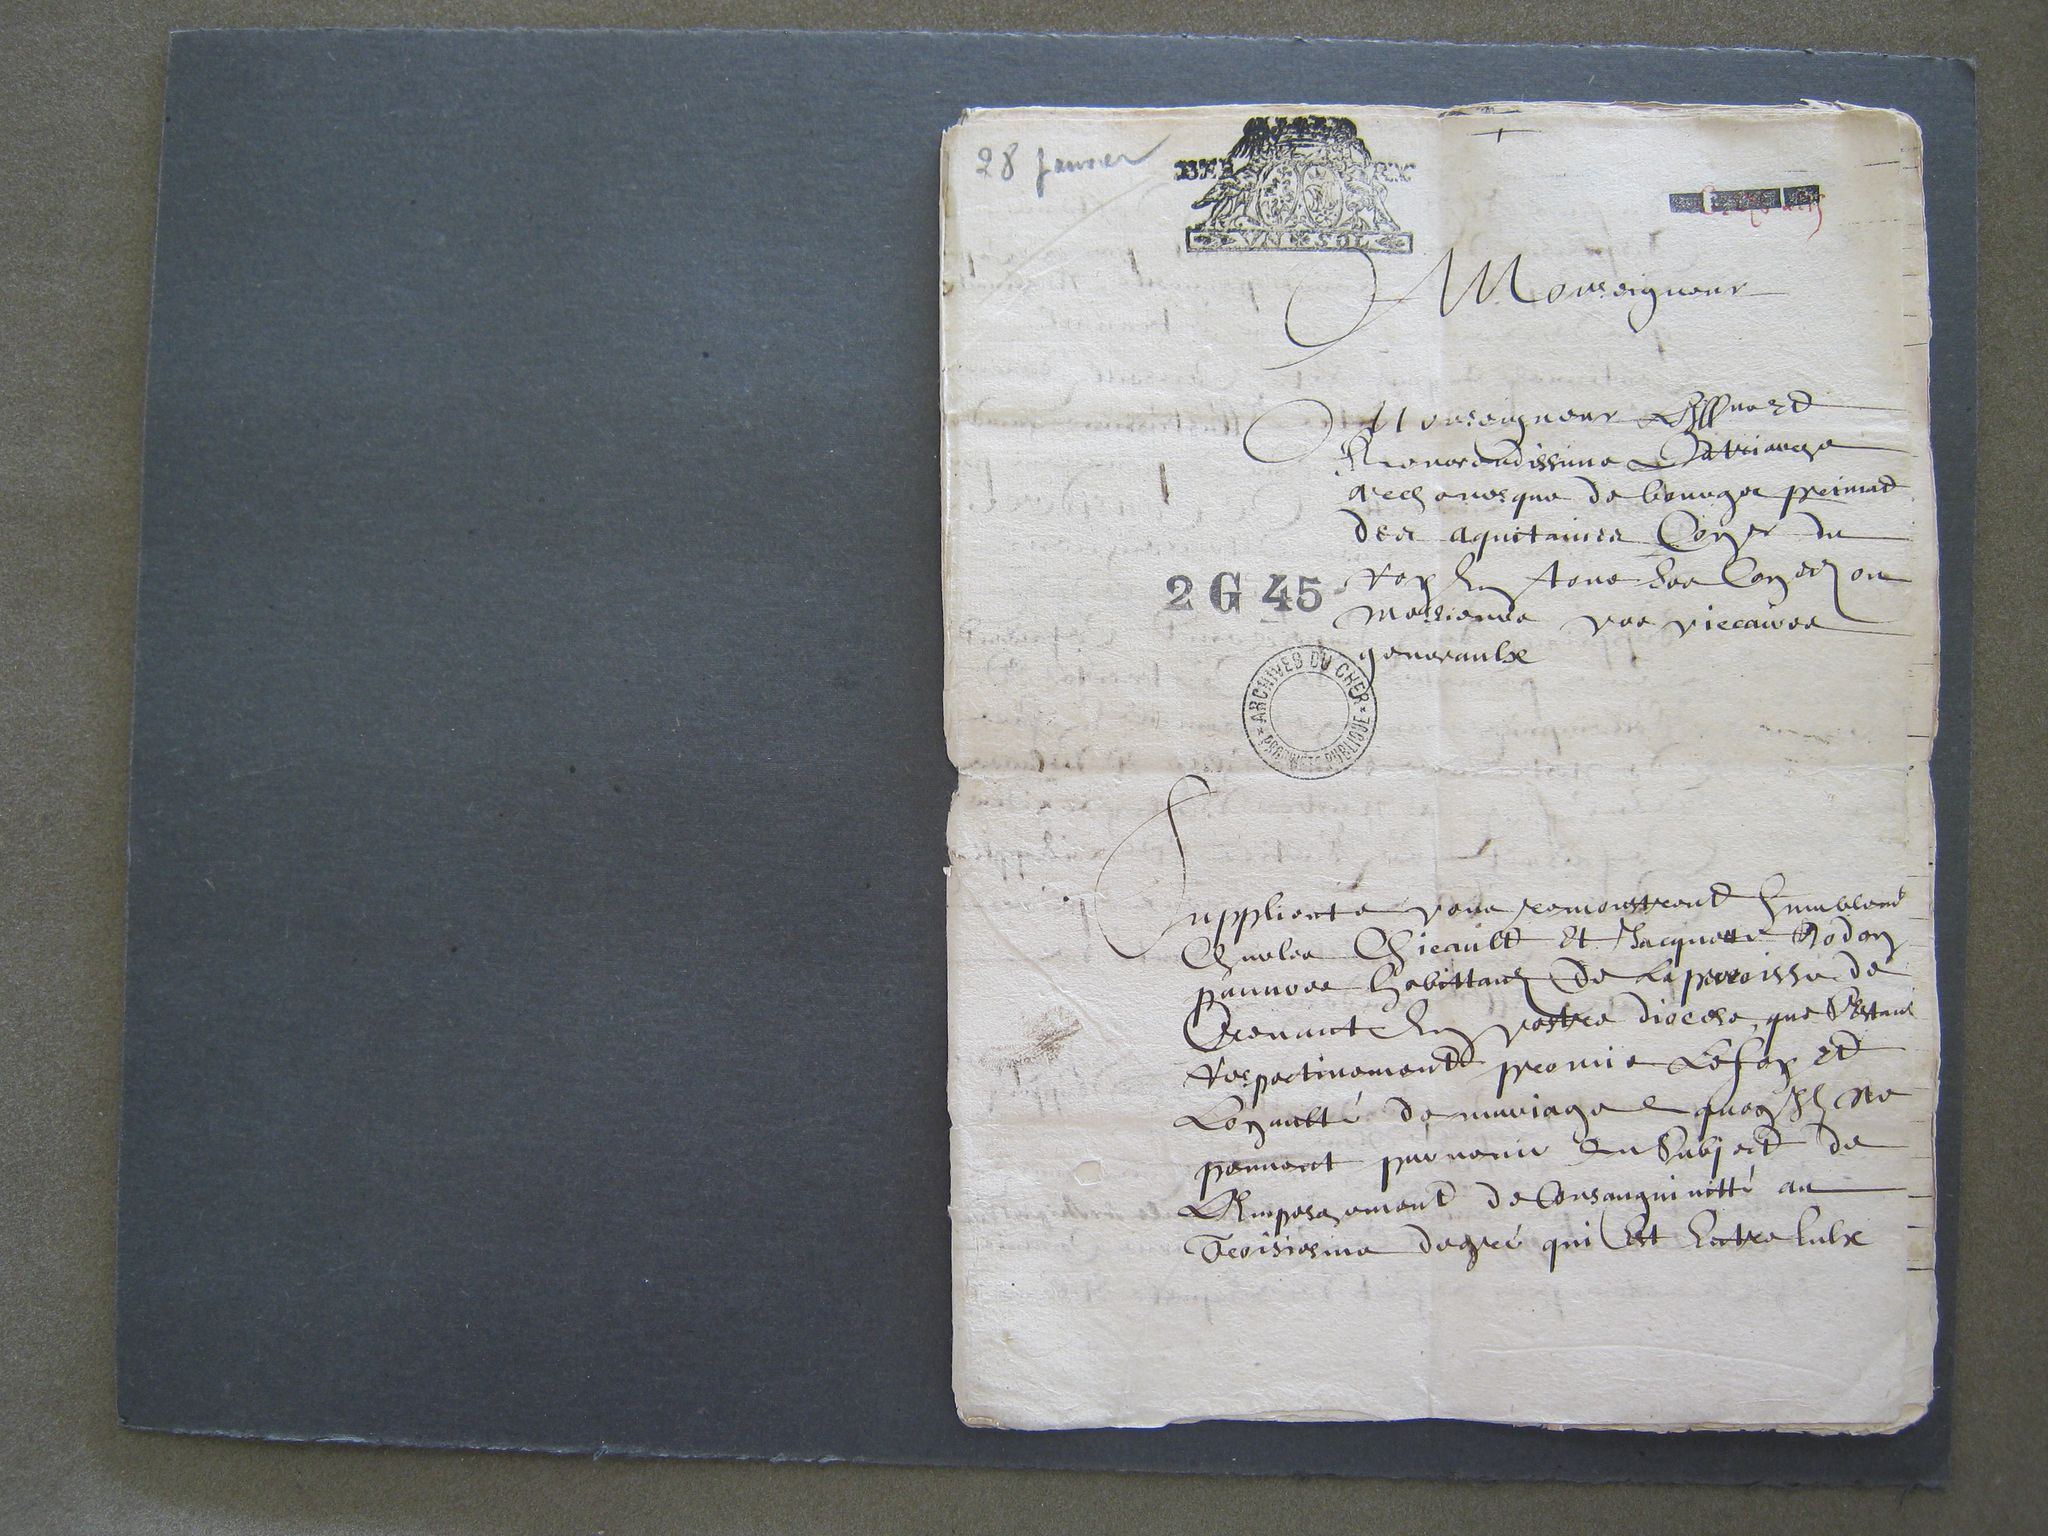 28 janvier
BER RY
VN SOL
Monseigneur
Monseigneur
Reverendissime Patriarche
archevesque de bourges primat
des aquitaines Con^er du
roy En tous ses Con^eils ou
messieurs vos viccaires
generaulx
2 G 45
ARCHIVES DU CHER
PROPRIÉTÉ PUBLIQUE
Supplient et vous remonstrent humblemt
Charles Chicault Et Jacquette Bodon
pauvres habittans de La paroisse de
En vostre diocese, que S'estans
respectivement promis La foy Et
Loyaulté de mariage a quoy Ilz ne
peuvent parvenir au Subject de
L'Empeschement de Consanguinitté au
Troisiesme degré qui Est Entre Eulx